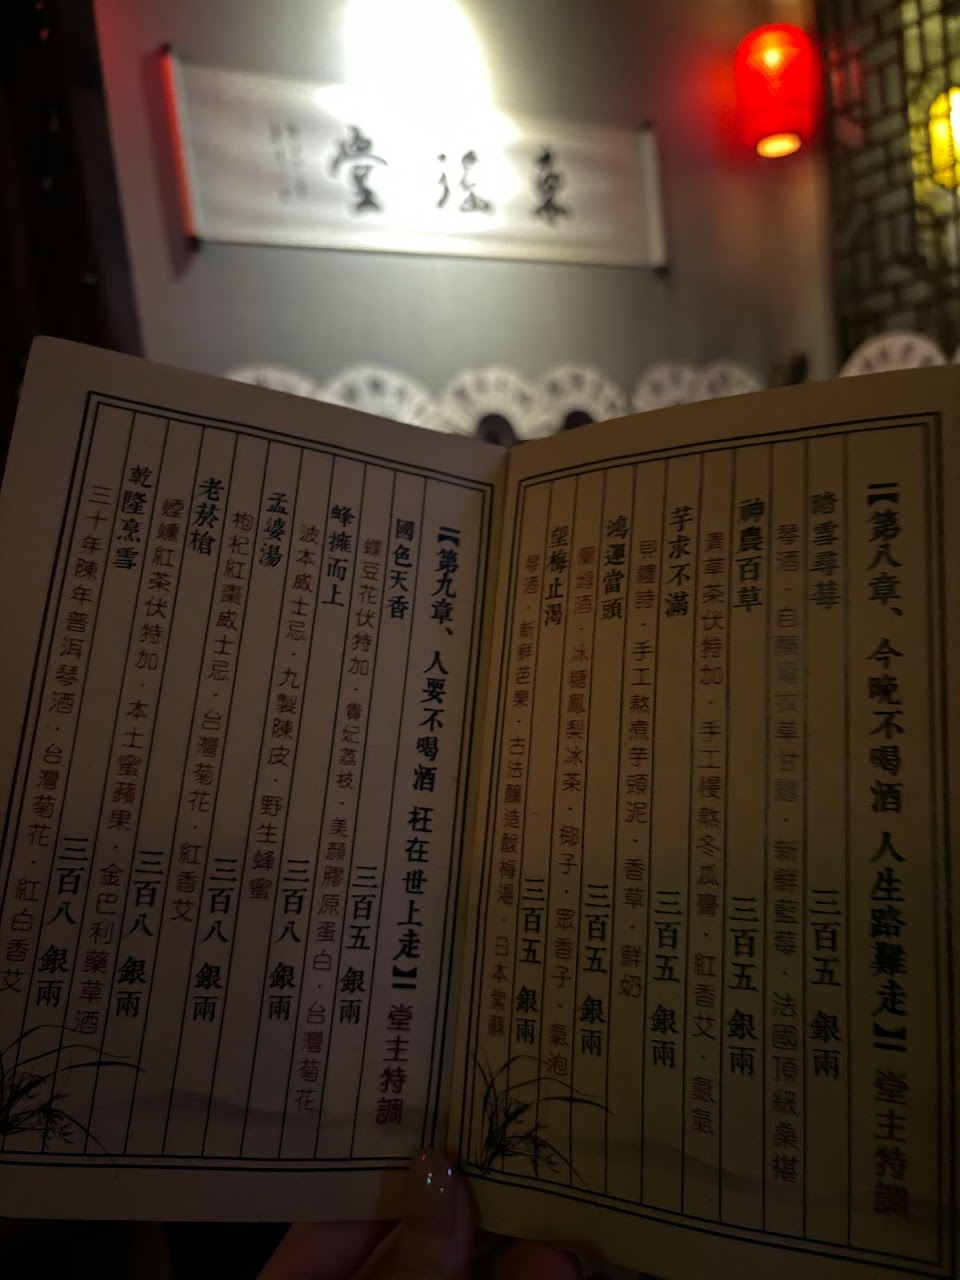 東瑤堂
【第八章、今晚不喝酒 人生路難走】 堂主特調
踏雪尋莓 三百五 銀兩
琴酒．自釀薰衣草甘露．新鮮藍莓．法國頂級桑椹
神農百草 三百五 銀兩
青草茶伏特加．手工慢熬冬瓜膏．紅香艾．氮氣
芋求不滿 三百五 銀兩
貝禮詩．手工熬煮芋頭泥．香草．鮮奶
鴻運當頭 三百五 銀兩
蘭姆酒．冰糖鳳梨冰茶．椰子．眾香子．氣泡
望梅止渴 三百五 銀兩
琴酒．新鮮芭樂．古法釀造酸梅湯．日本紫蘇
【第九章、人要不喝酒 枉在世上走】 堂主特調
國色天香 三百五 銀兩
蝶豆花伏特加．貴妃荔枝．美顏膠原蛋白．台灣菊花
蜂擁而上 三百五 銀兩
波本威士忌．九製陳皮．野生蜂蜜
孟婆湯 三百八 銀兩
枸杞紅棗威士忌．台灣菊花．紅香艾
老菸槍 三百八 銀兩
煙燻紅茶伏特加．本土蜜蘋果．金巴利藥草酒
乾隆烹雪 三百八 銀兩
三十年陳年普洱琴酒．台灣菊花．紅白香艾
三百八 銀兩